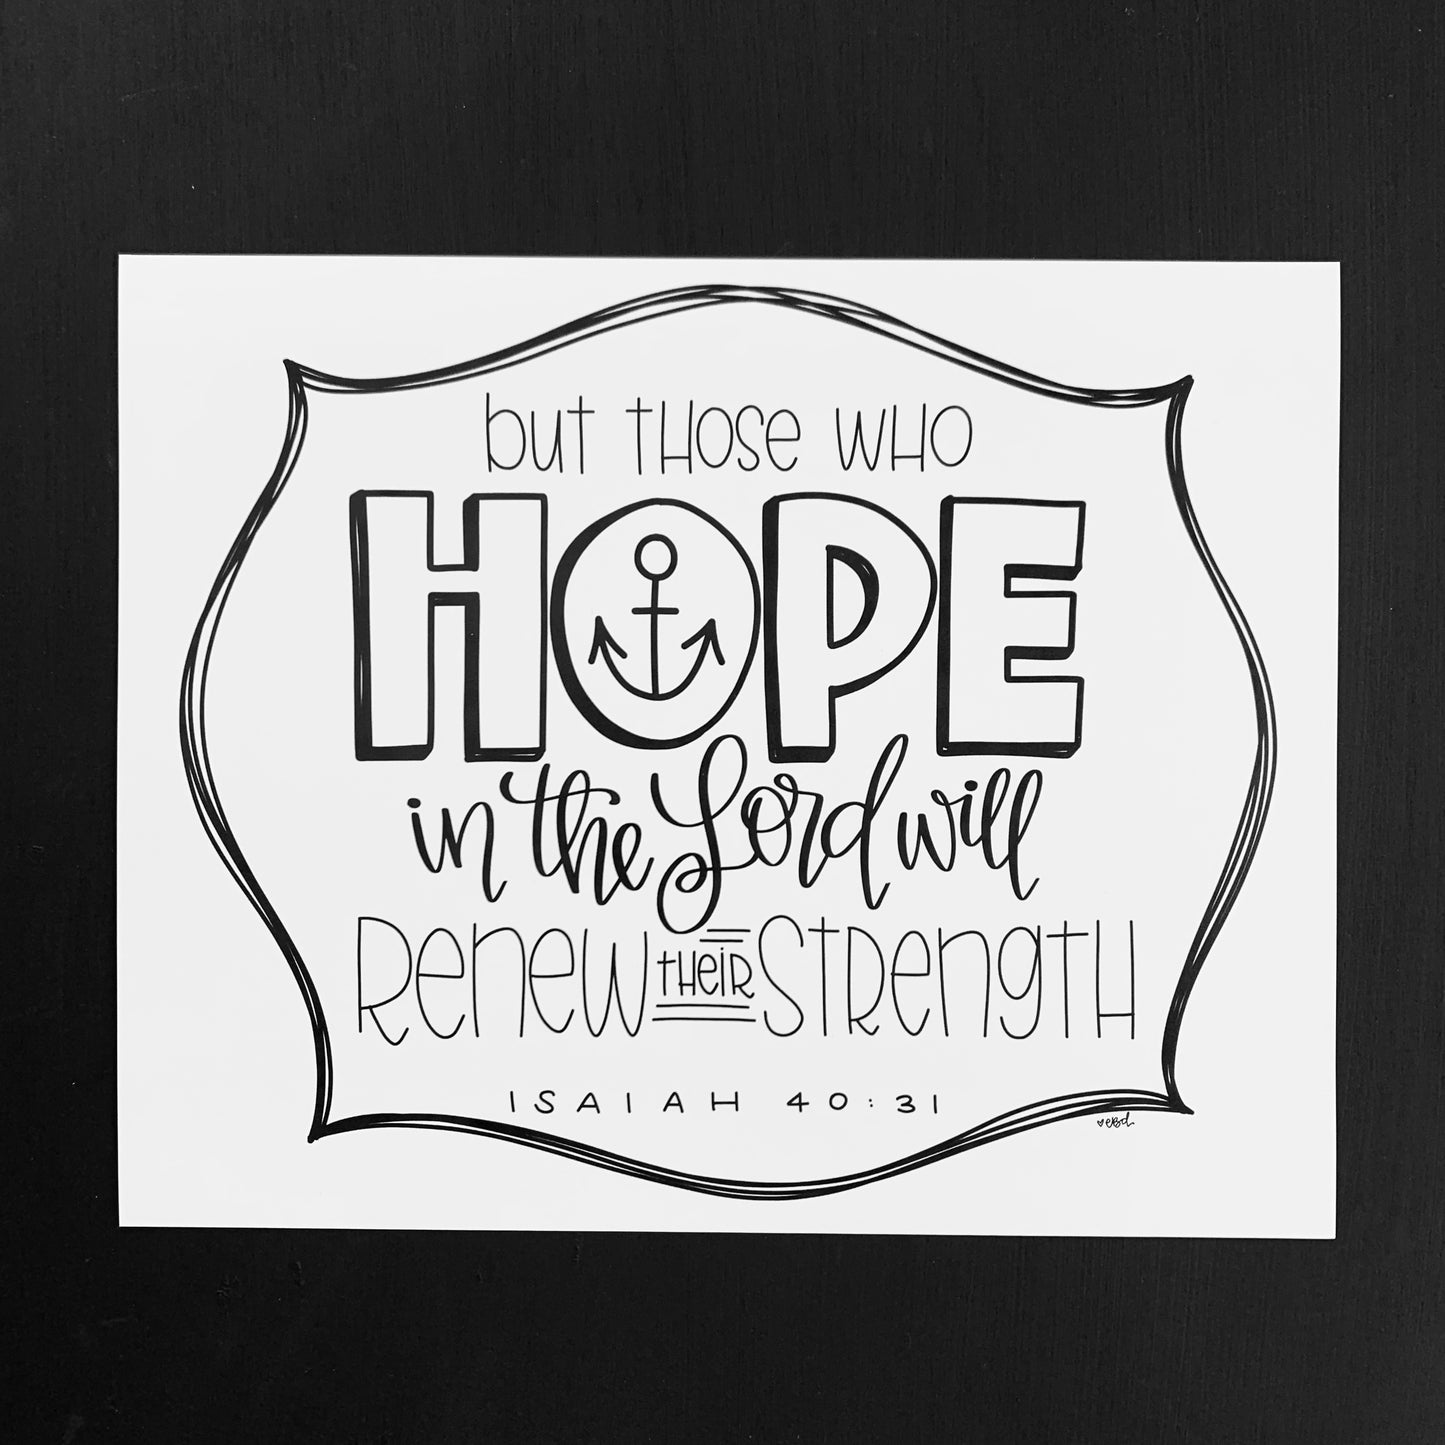 but THOSE WHO
HOPE
in the Lord will
Renew THEIR STRENGTH
ISAIAH 40:31
ebd